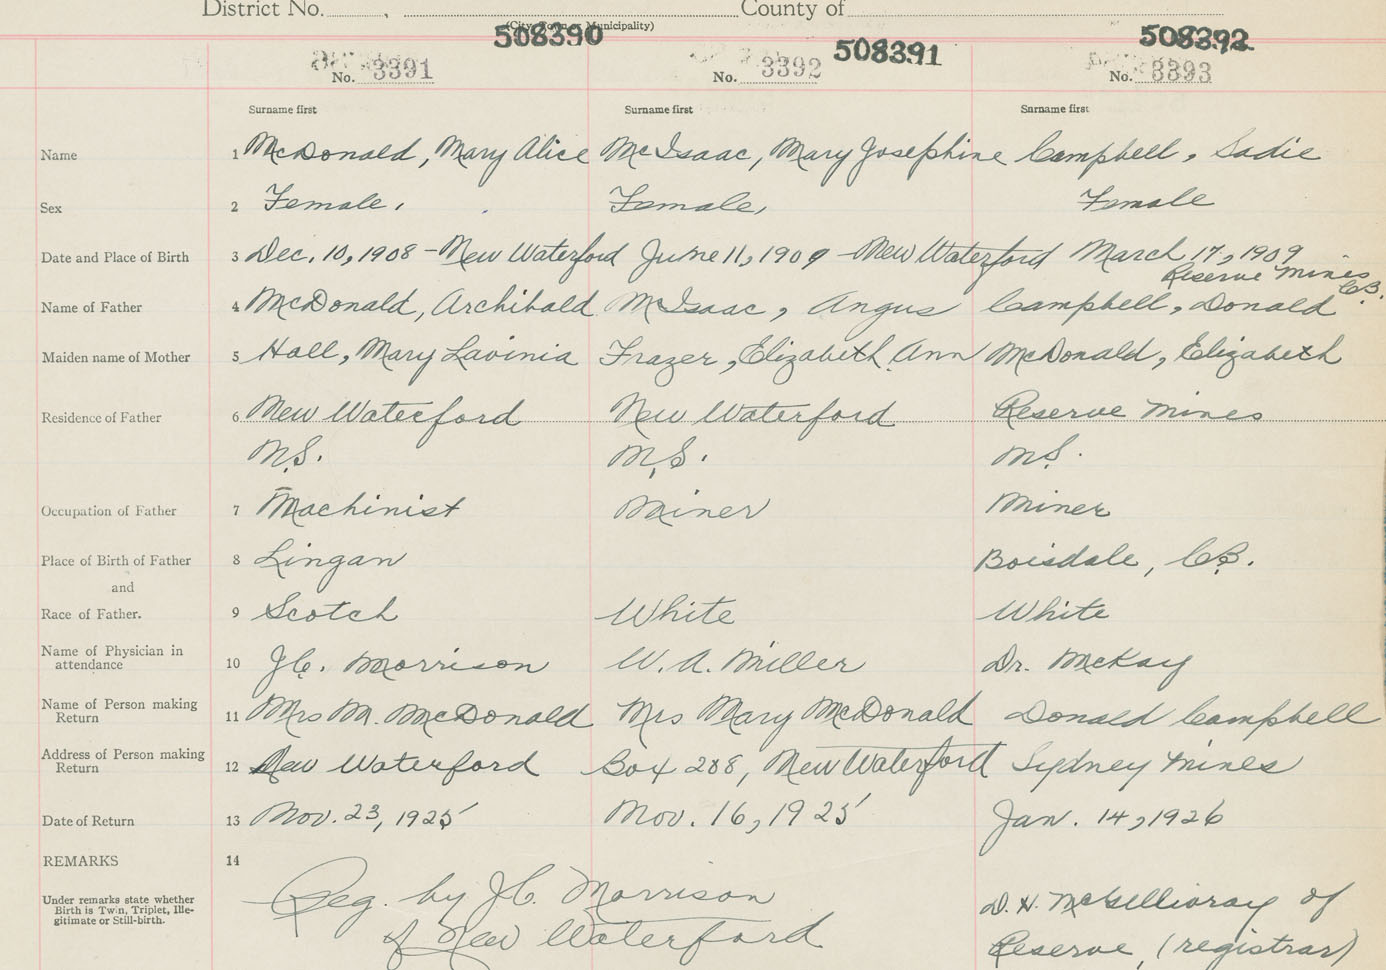 District No. , County of
(City, Town or Municipality)
508390 508391 508392
No. 3391 No. 3392 No. 3393
Surname first Surname first Surname first
Name 1 McDonald, Mary Alice McIsaac, Mary Josephine Campbell, Sadie
Sex 2 Female, Female, Female
Date and Place of Birth 3 Dec. 10, 1908 - New Waterford June 11, 1909 - New Waterford March 17, 1909
Reserve Mines C.B.
Name of Father 4 McDonald, Archibald McIsaac, Angus Campbell, Donald
Maiden name of Mother 5 Hall, Mary Lavinia Frazer, Elizabeth Ann McDonald, Elizabeth
Residence of Father 6 New Waterford New Waterford Reserve Mines
N.S. N.S. N.S.
Occupation of Father 7 Machinist Miner Miner
Place of Birth of Father 8 Lingan Boisdale, C.B.
and
Race of Father. 9 Scotch White White
Name of Physician in attendance 10 J.C. Morrison W. A. Miller Dr. McKay
Name of Person making Return 11 Mrs M. McDonald Mrs Mary McDonald Donald Campbell
Address of Person making Return 12 New Waterford Box 288, New Waterford Sydney Mines
Date of Return 13 Nov. 23, 1925 Nov. 16, 1925 Jan. 14, 1926
REMARKS 14
Under remarks state whether
Birth is Twin, Triplet, Ille-
gitimate or Still-birth.
Reg. by J.C. Morrison
of New Waterford
D. H. McGillivray of
Reserve, (registrar)